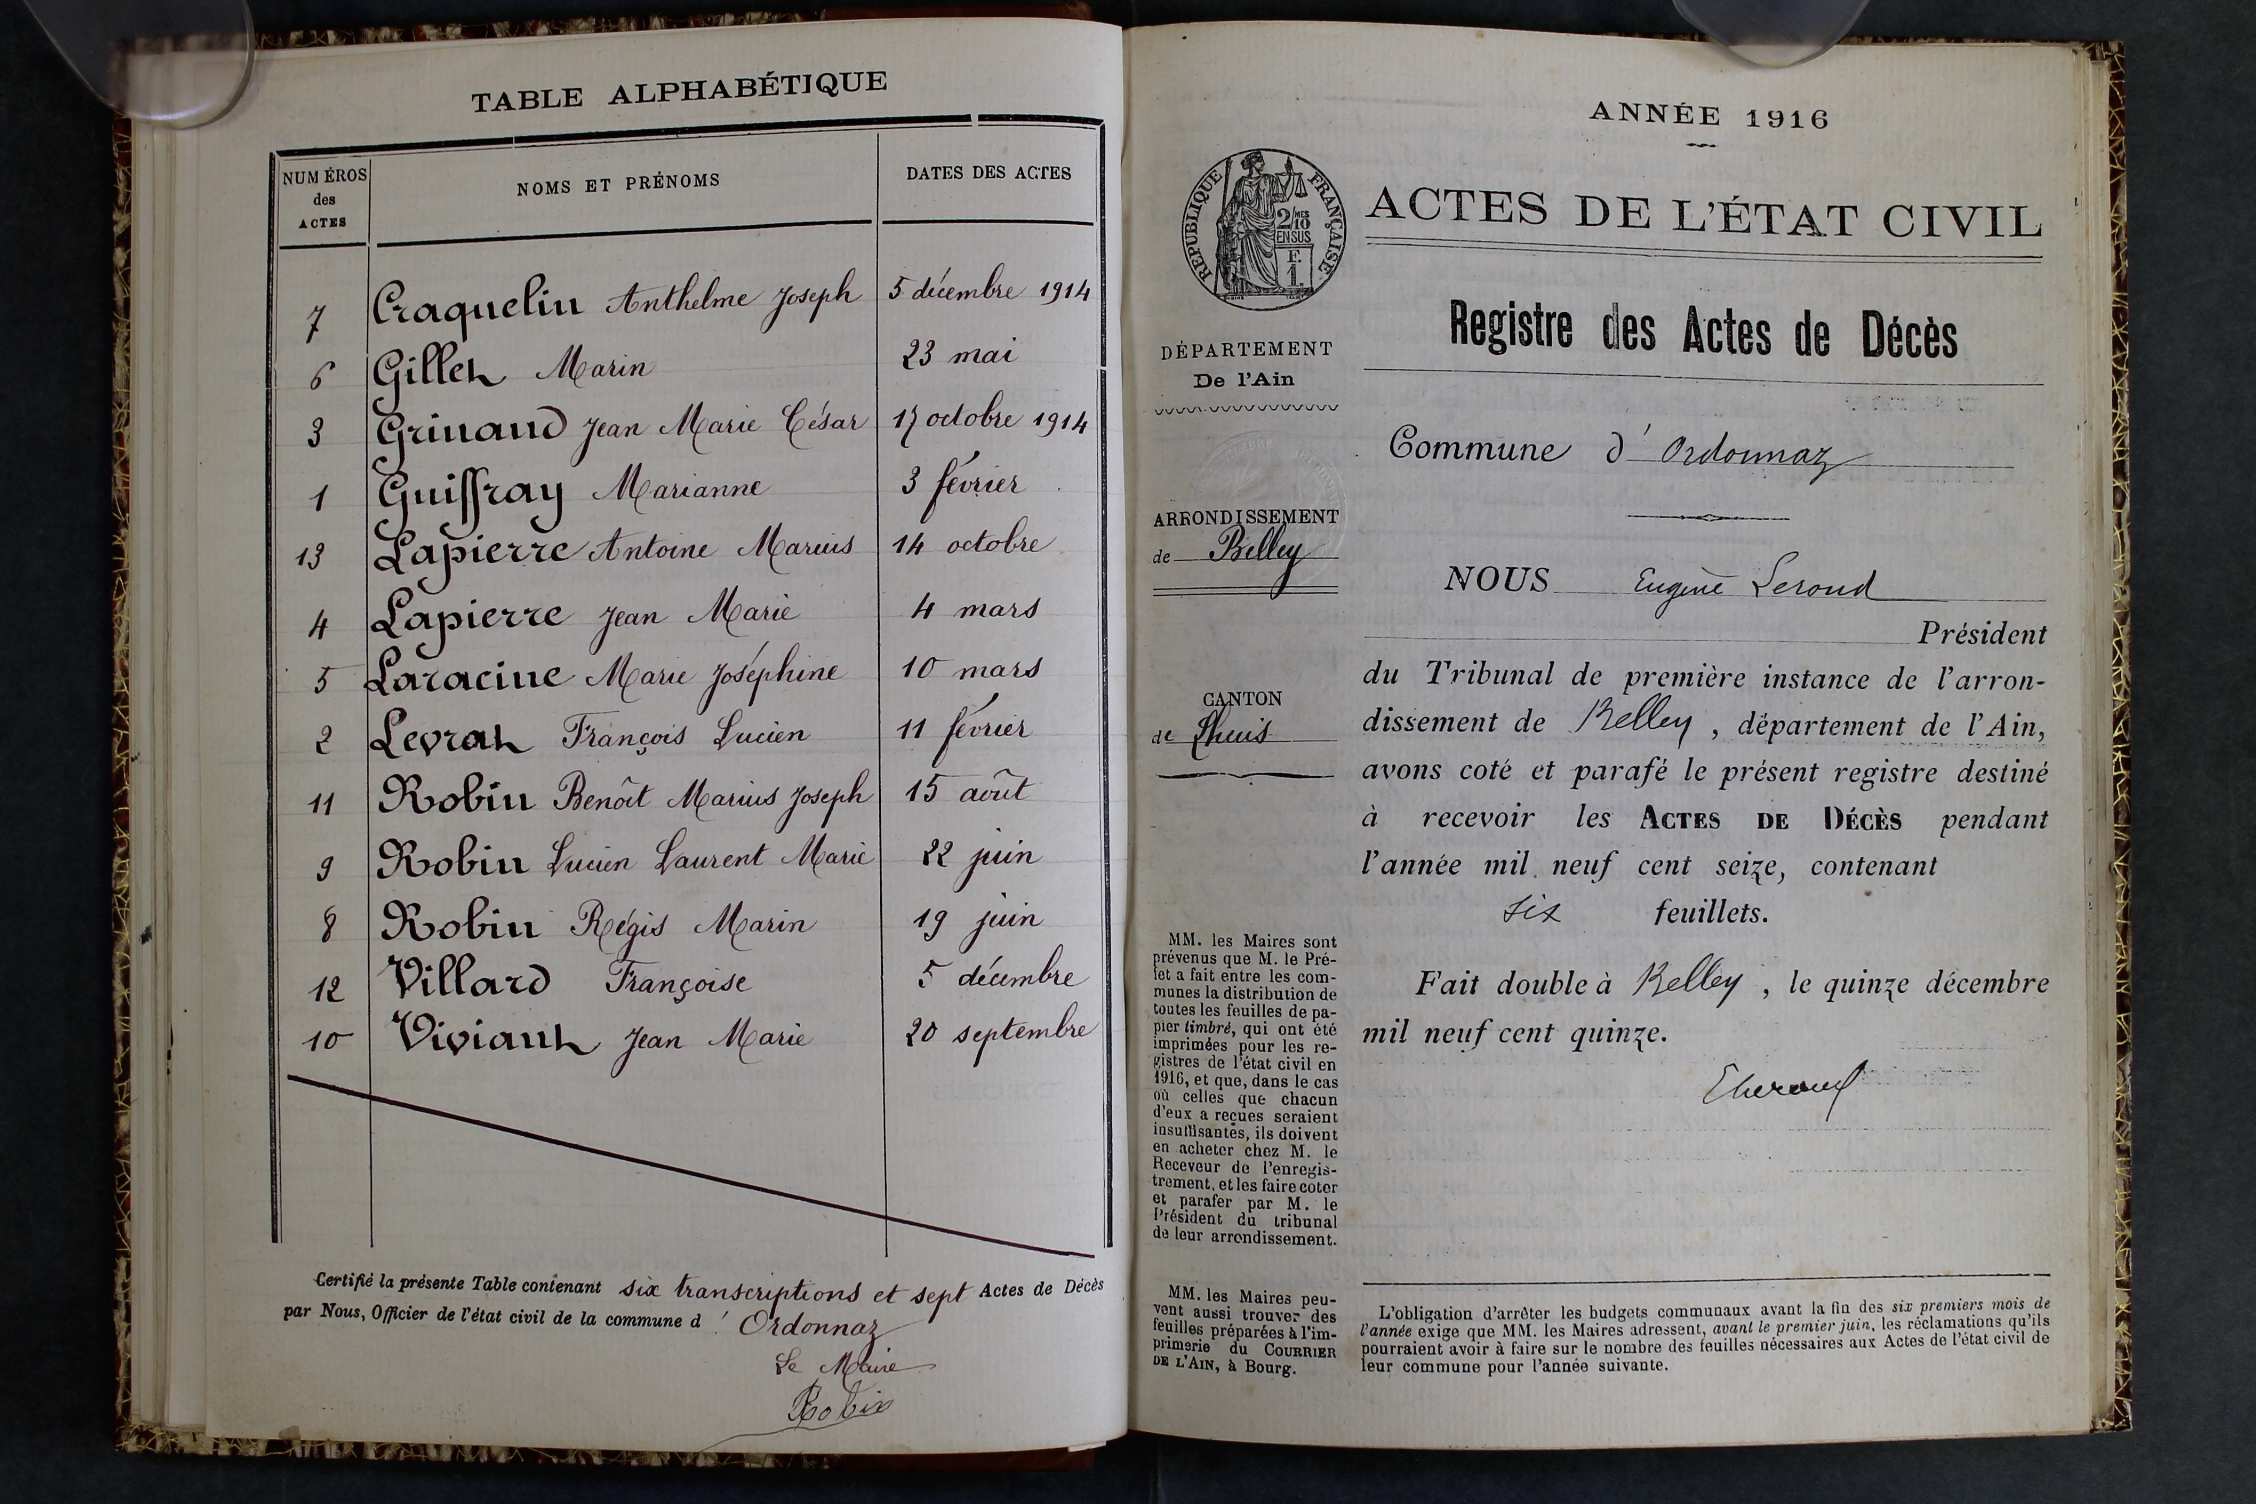 TABLE ALPHABÉTIQUE
NUMÉROS des ACTES NOMS ET PRÉNOMS DATES DES ACTES
7 Craquelin Anthelme Joseph 5 décembre 1914
6 Gillet Marin 23 mai
3 Grinand Jean Marie César 17 octobre 1914
1 Guiffray Marianne 3 février
13 Lapierre Antoine Marius 14 octobre
4 Lapierre Jean Marie 4 mars
5 Laracine Marie Joséphine 10 mars
2 Levrat François Lucien 11 février
11 Robin Benoît Marius Joseph 15 août
9 Robin Lucien Laurent Marie 22 juin
8 Robin Régis Marin 19 juin
12 Villard Françoise 5 décembre
10 Viviant Jean Marie 20 septembre
Certifié la présente Table contenant six transcriptions et sept Actes de Décès
par Nous, Officier de l'état civil de la commune d' Ordonnaz
Le Maire
Robin
ANNÉE 1916
RÉPUBLIQUE FRANÇAISE
2/10 MES
EN SUS
F.
1
ACTES DE L'ÉTAT CIVIL
Registre des Actes de Décès
DÉPARTEMENT
De l'Ain
ARRONDISSEMENT
de Belley
CANTON
de Lhuis
MM. les Maires sont
prévenus que M. le Pré-
fet a fait entre les com-
munes la distribution de
toutes les feuilles de pa-
pier timbré, qui ont été
imprimées pour les re-
gistres de l'état civil en
1916, et que, dans le cas
où celles que chacun
d'eux a reçues seraient
insuffisantes, ils doivent
en acheter chez M. le
Receveur de l'enregis-
trement, et les faire coter
et parafer par M. le
Président du tribunal
de leur arrondissement.
MM. les Maires peu-
vent aussi trouver des
feuilles préparées à l'im-
primerie du COURRIER
DE L'AIN, à Bourg.
Commune d'Ordonnaz
NOUS Eugène Leroud
Président
du Tribunal de première instance de l'arron-
dissement de Belley, département de l'Ain,
avons coté et parafé le présent registre destiné
à recevoir les ACTES DE DÉCÈS pendant
l'année mil neuf cent seize, contenant
six feuillets.
Fait double à Belley, le quinze décembre
mil neuf cent quinze.
L'obligation d'arrêter les budgets communaux avant la fin des six premiers mois de
l'année exige que MM. les Maires adressent, avant le premier juin, les réclamations qu'ils
pourraient avoir à faire sur le nombre des feuilles nécessaires aux Actes de l'état civil de
leur commune pour l'année suivante.